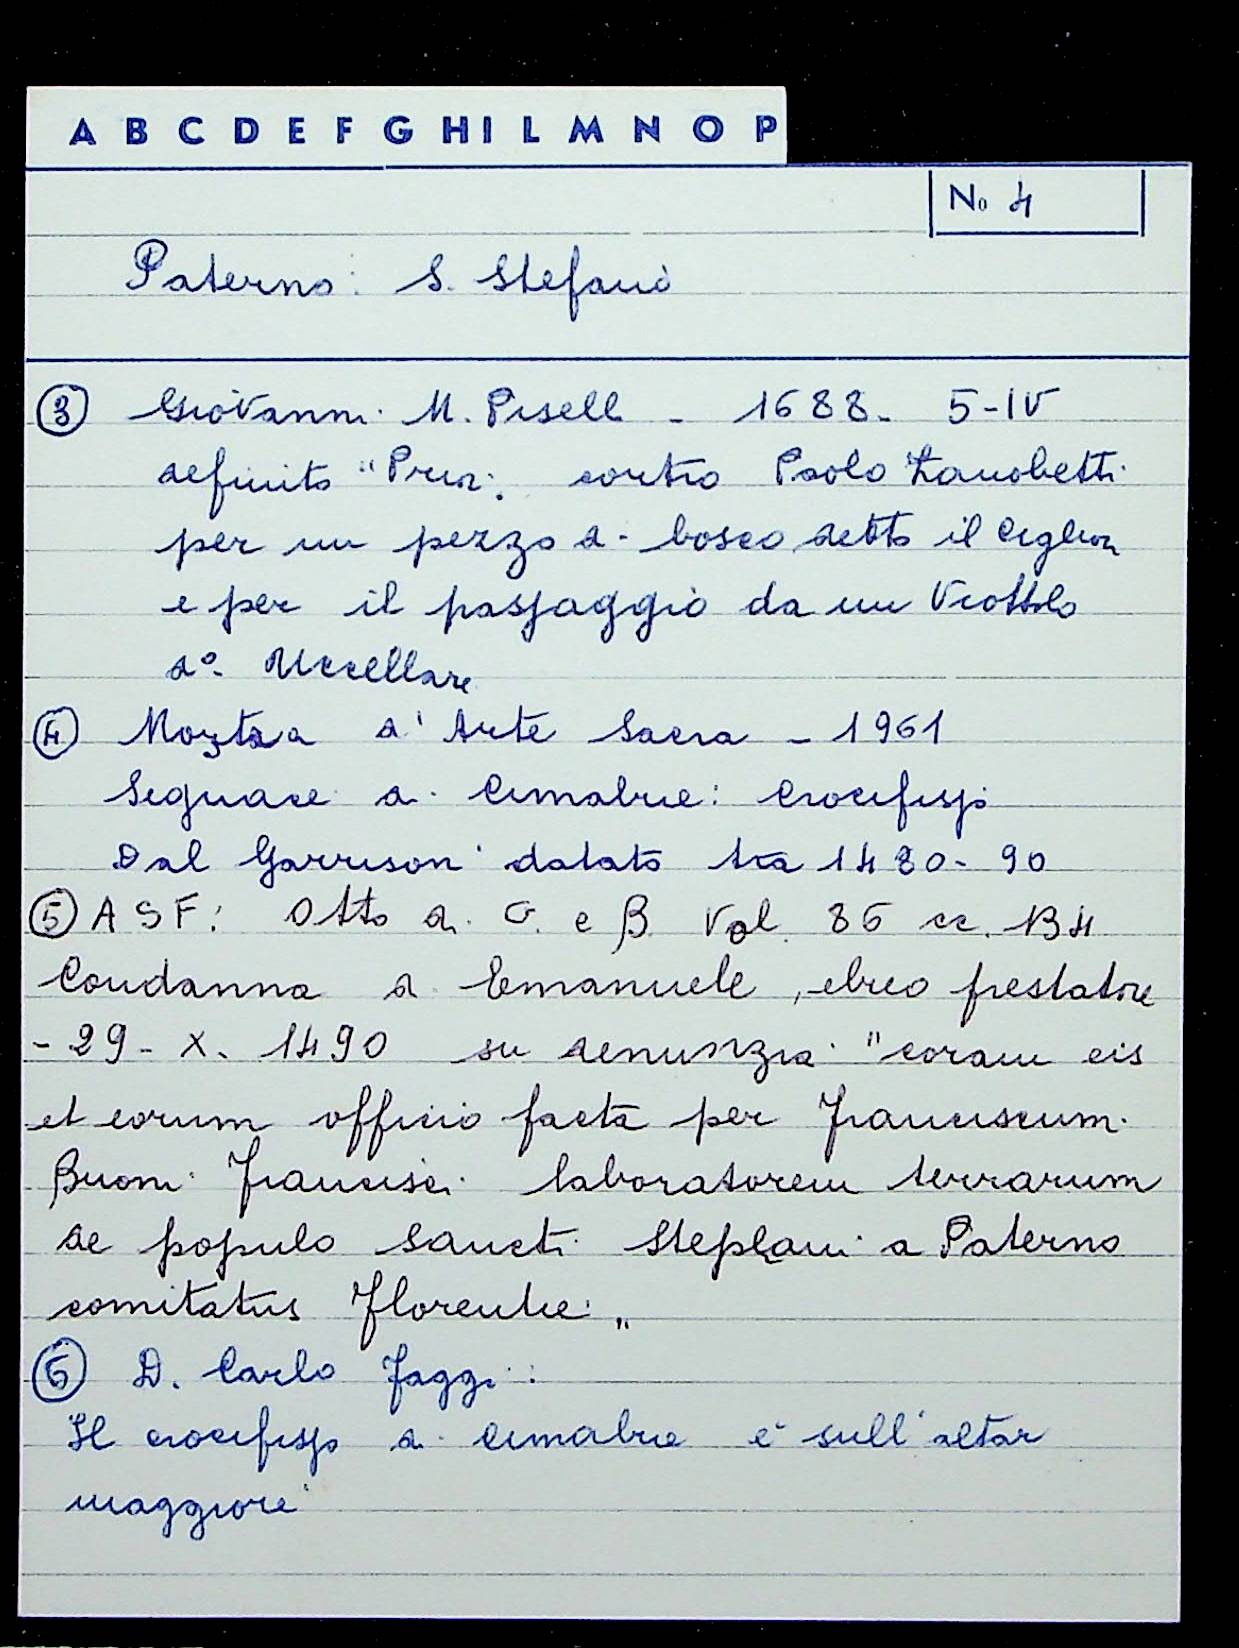 A B C D E F G H I L M N O P
No 4
Paterno: S. Stefano
③ Giovanni M. Piselli - 1688 - 5-IV
definito "Prior. contro Paolo Zanobetti
per un pezzo di bosco detto il Ciglion
e per il passaggio da un Viottolo
d° Uccellare
④ Mostra d'Arte Sacra - 1961
Seguace di Cimabue: Crocifisso
Dal Garrison datato tra 1480-90
⑤ ASF: Otto di G. e B. Vol. 86 cc. 134
Condanna di Emanuele, ebreo prestatore
- 29 - X. 1490 su denunzia "coram eis
et eorum officio facta per Franciscum
Buoni Francisci laboratorem terrarum
de populo Sancti Stephani a Paterno
comitatus Florentie"
⑥ D. Carlo Faggi:
Il crocifisso di Cimabue è sull'altar
maggiore